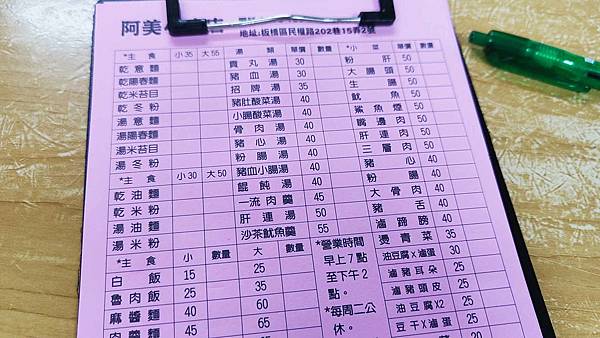 阿美
地址:板橋區民權路202巷15弄2號
*主食 小35 大55
乾意麵
乾陽春麵
乾米苔目
乾冬粉
湯意麵
湯陽春麵
湯米苔目
湯冬粉
*主食 小30 大50
乾油麵
乾米粉
湯油麵
湯米粉
*主食 小 數量 大 數量
白飯 15 25
魯肉飯 25 35
麻醬麵 40 60
肉羹麵 45 65
湯類 單價 數量
貢丸湯 30
豬血湯 30
招牌湯 35
豬肚酸菜湯 40
小腸酸菜湯 40
骨肉湯 40
豬心湯 40
粉腸湯 40
豬血小腸湯 40
餛飩湯 40
一流肉羹 45
肝連湯 50
沙茶魷魚羹 55
*營業時間
早上7點
至下午2
點。
*每周二公
休。
*小菜 單價 數量
粉肝 50
大腸頭 50
生腸 50
魷魚 50
鯊魚煙 50
嘴邊肉 50
肝連肉 50
三層肉 50
豬心 40
粉腸 40
大骨肉 40
豬舌 40
滷蹄膀 40
燙青菜 35
油豆腐X滷蛋 30
滷豬耳朵 25
滷豬頭皮 25
油豆腐X2 20
豆干X滷蛋 25